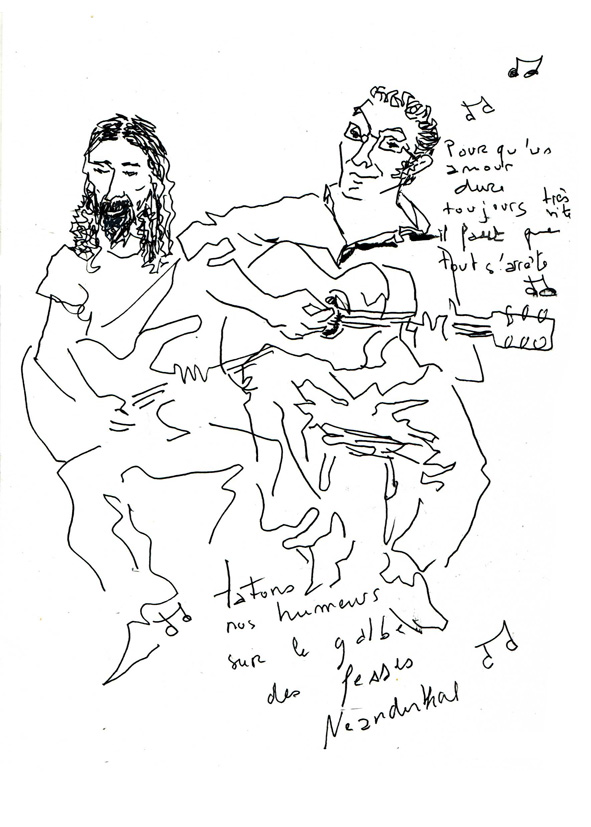 Pour qu'un
amour
dure
toujours très vite
il faut que
tout s'arrête
tatons
nos humeurs
sur le galbe
des fesses
Neanderthal